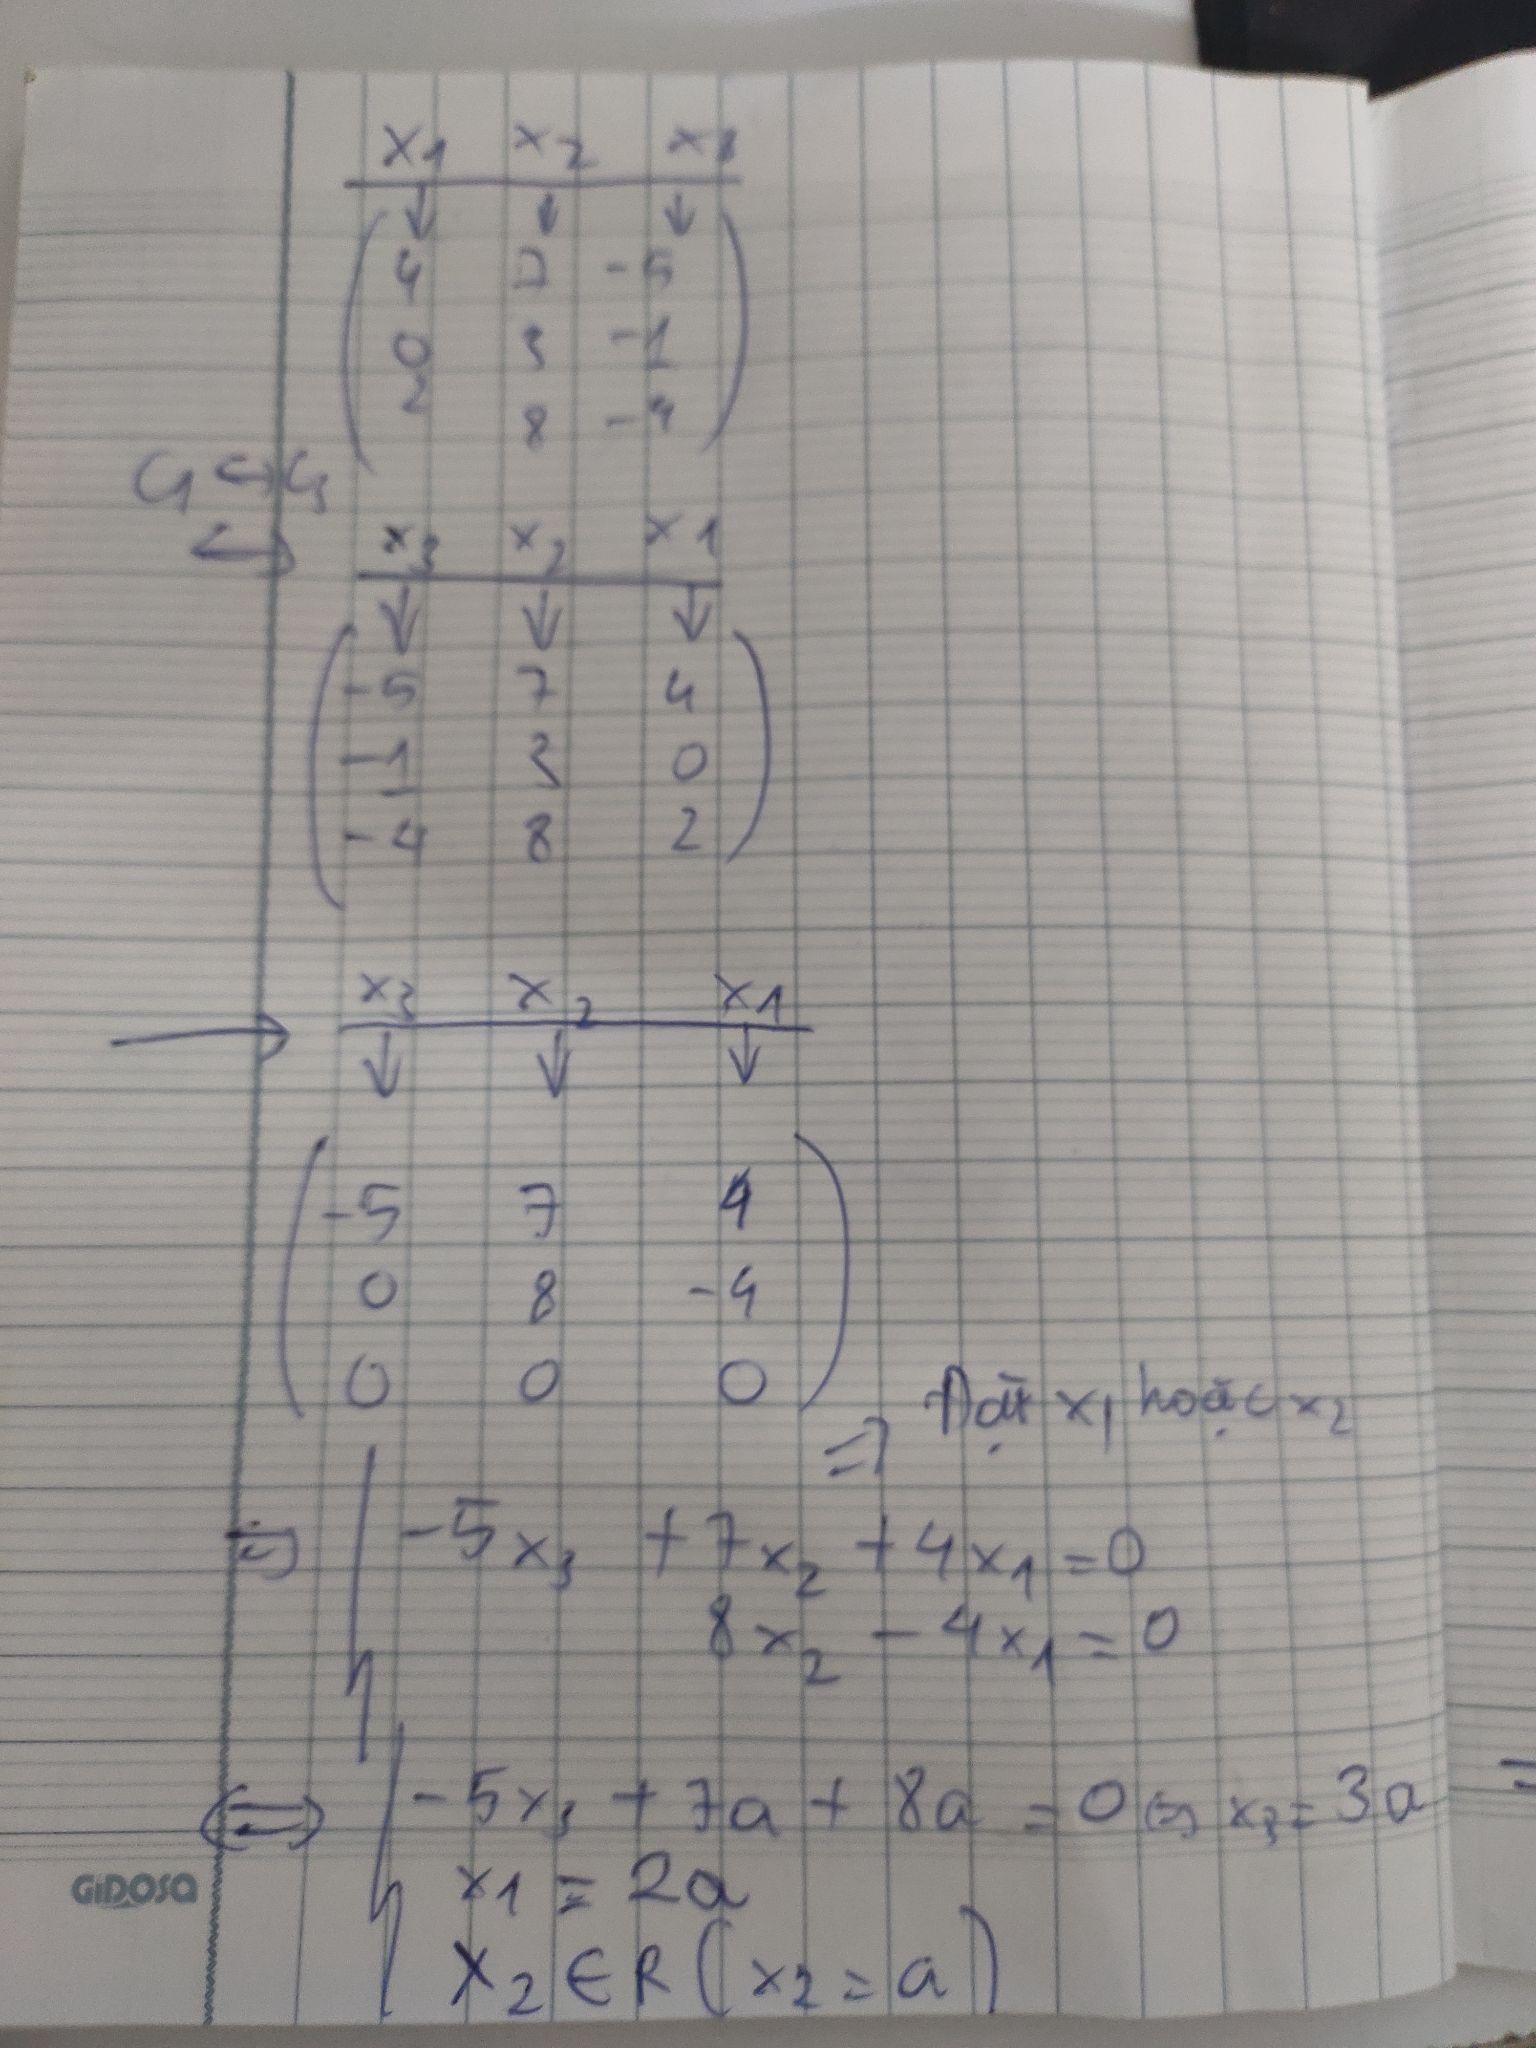 x1 x2 x3
↓ ↓ ↓
4 7 -5
0 3 -1
2 8 -4
C1 ↔ C3
↔ x3 x2 x1
↓ ↓ ↓
-5 7 4
-1 3 0
-4 8 2
→ x3 x2 x1
↓ ↓ ↓
-5 7 4
0 8 -4
0 0 0
⇒ Đặt x1 hoặc x2
⇔ -5x3 + 7x2 + 4x1 = 0
8x2 - 4x1 = 0
⇔ -5x3 + 7a + 8a = 0 ⇔ x3 = 3a
x1 = 2a
x2 ∈ R (x2 = a)
GIDOSA